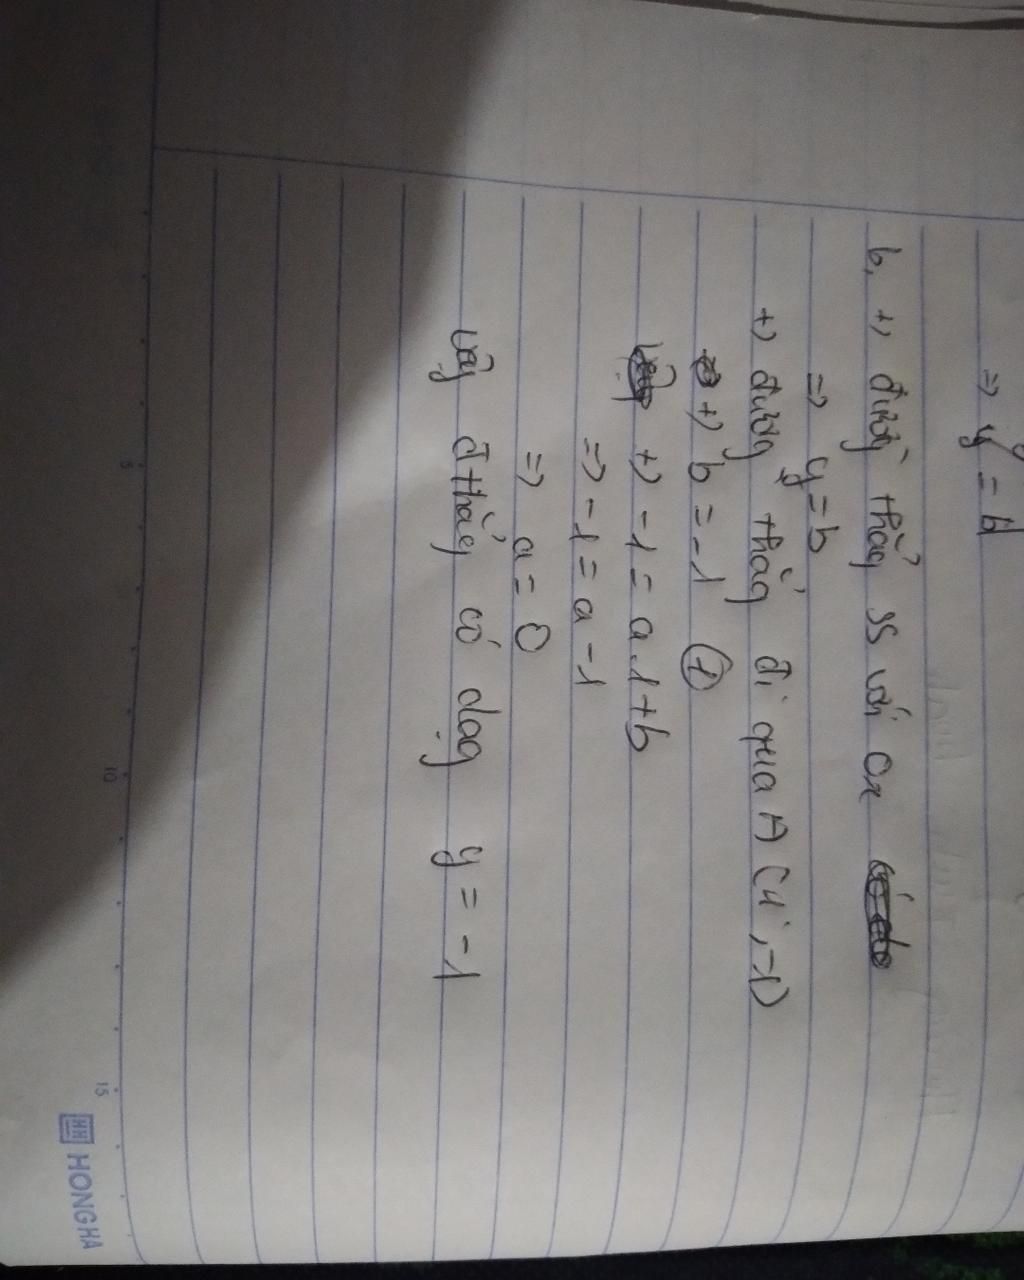 => y = b
b, +) đường thẳng ss với Ox
=> y = b
+) đường thẳng đi qua A (1; -1)
+) b = -1 ①
+) -1 = a.1 + b
=> -1 = a - 1
=> a = 0
vậy đ thẳng có dạg y = -1
5
10
15
HH HONG HA